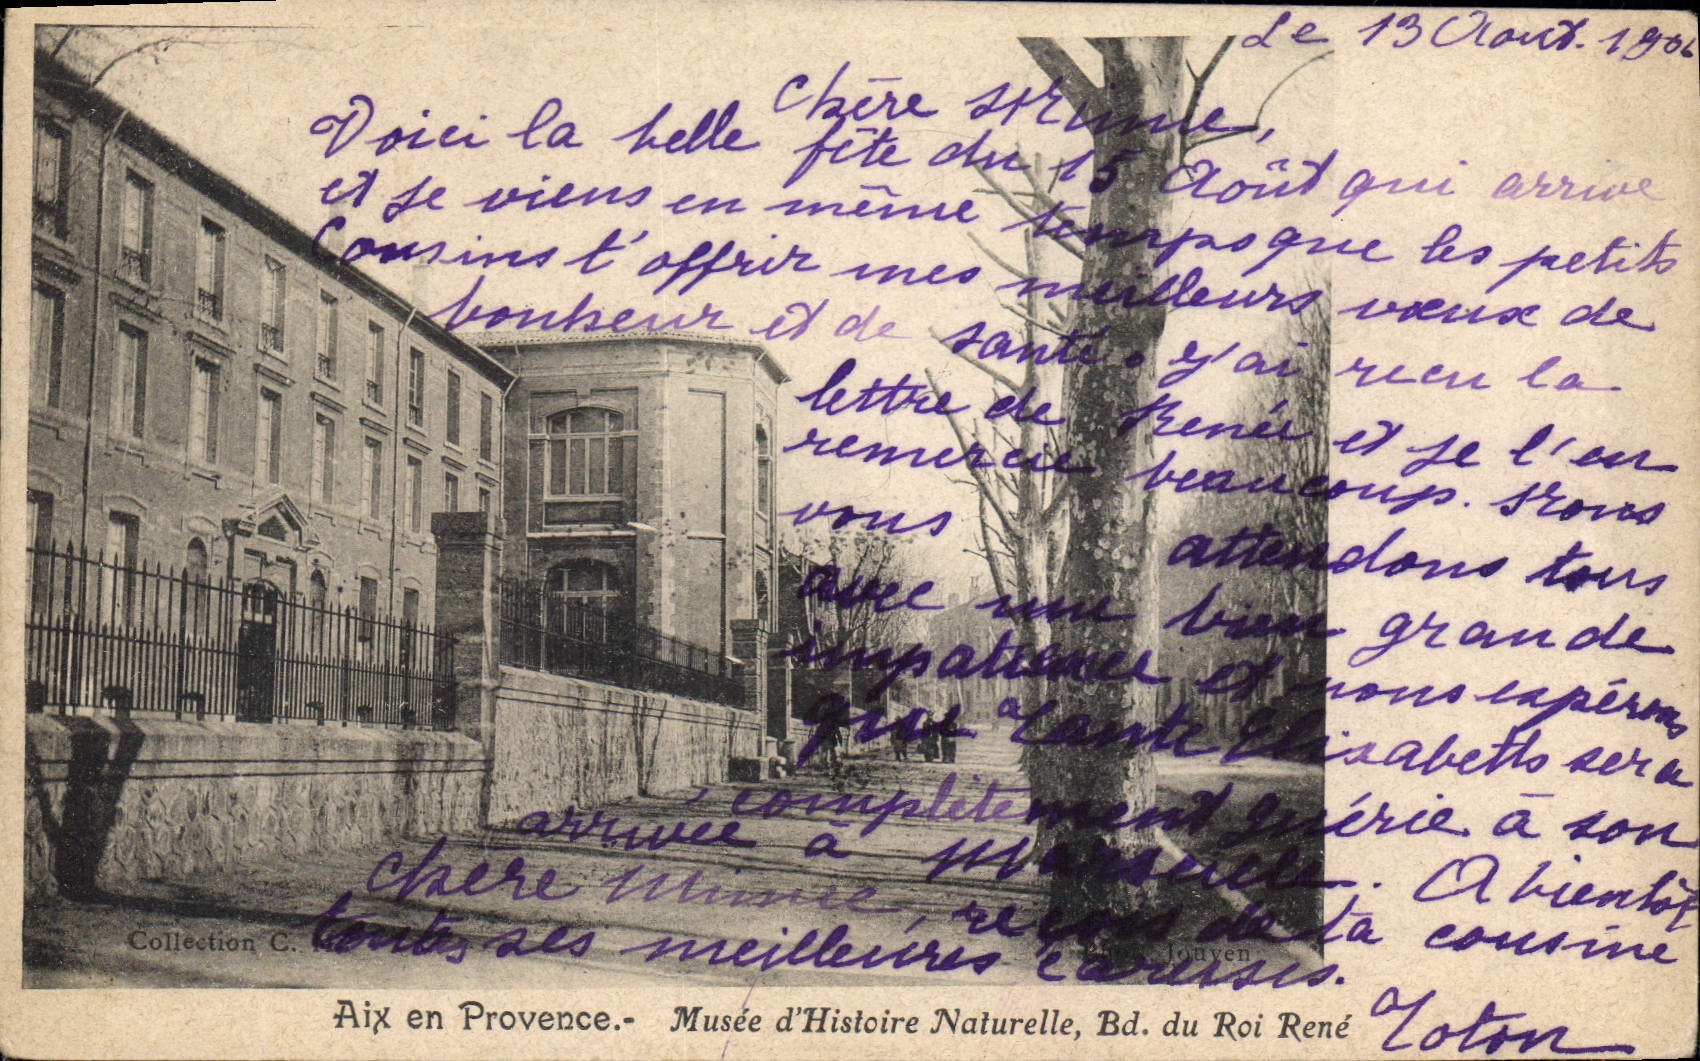 Le 13 Août. 1906
Chère Mimie,
Voici la belle fête du 15 Août qui arrive
et je viens en même temps que les petits
Cousins t'offrir mes meilleurs vœux de
bonheur et de santé. J'ai recu la
lettre de Renée et je l'en
remercie beaucoup. Nous
vous attendons tous
avec une bien grande
impatience et nous espérons
que Tante Elisabeth sera
complètement guérie à son
arrivée à Marseille. A bientôt
chère Mimie, reçois de ta cousine
toutes ses meilleures caresses.
Toton
Collection C.
Jouven
Aix en Provence.- Musée d'Histoire Naturelle, Bd. du Roi René